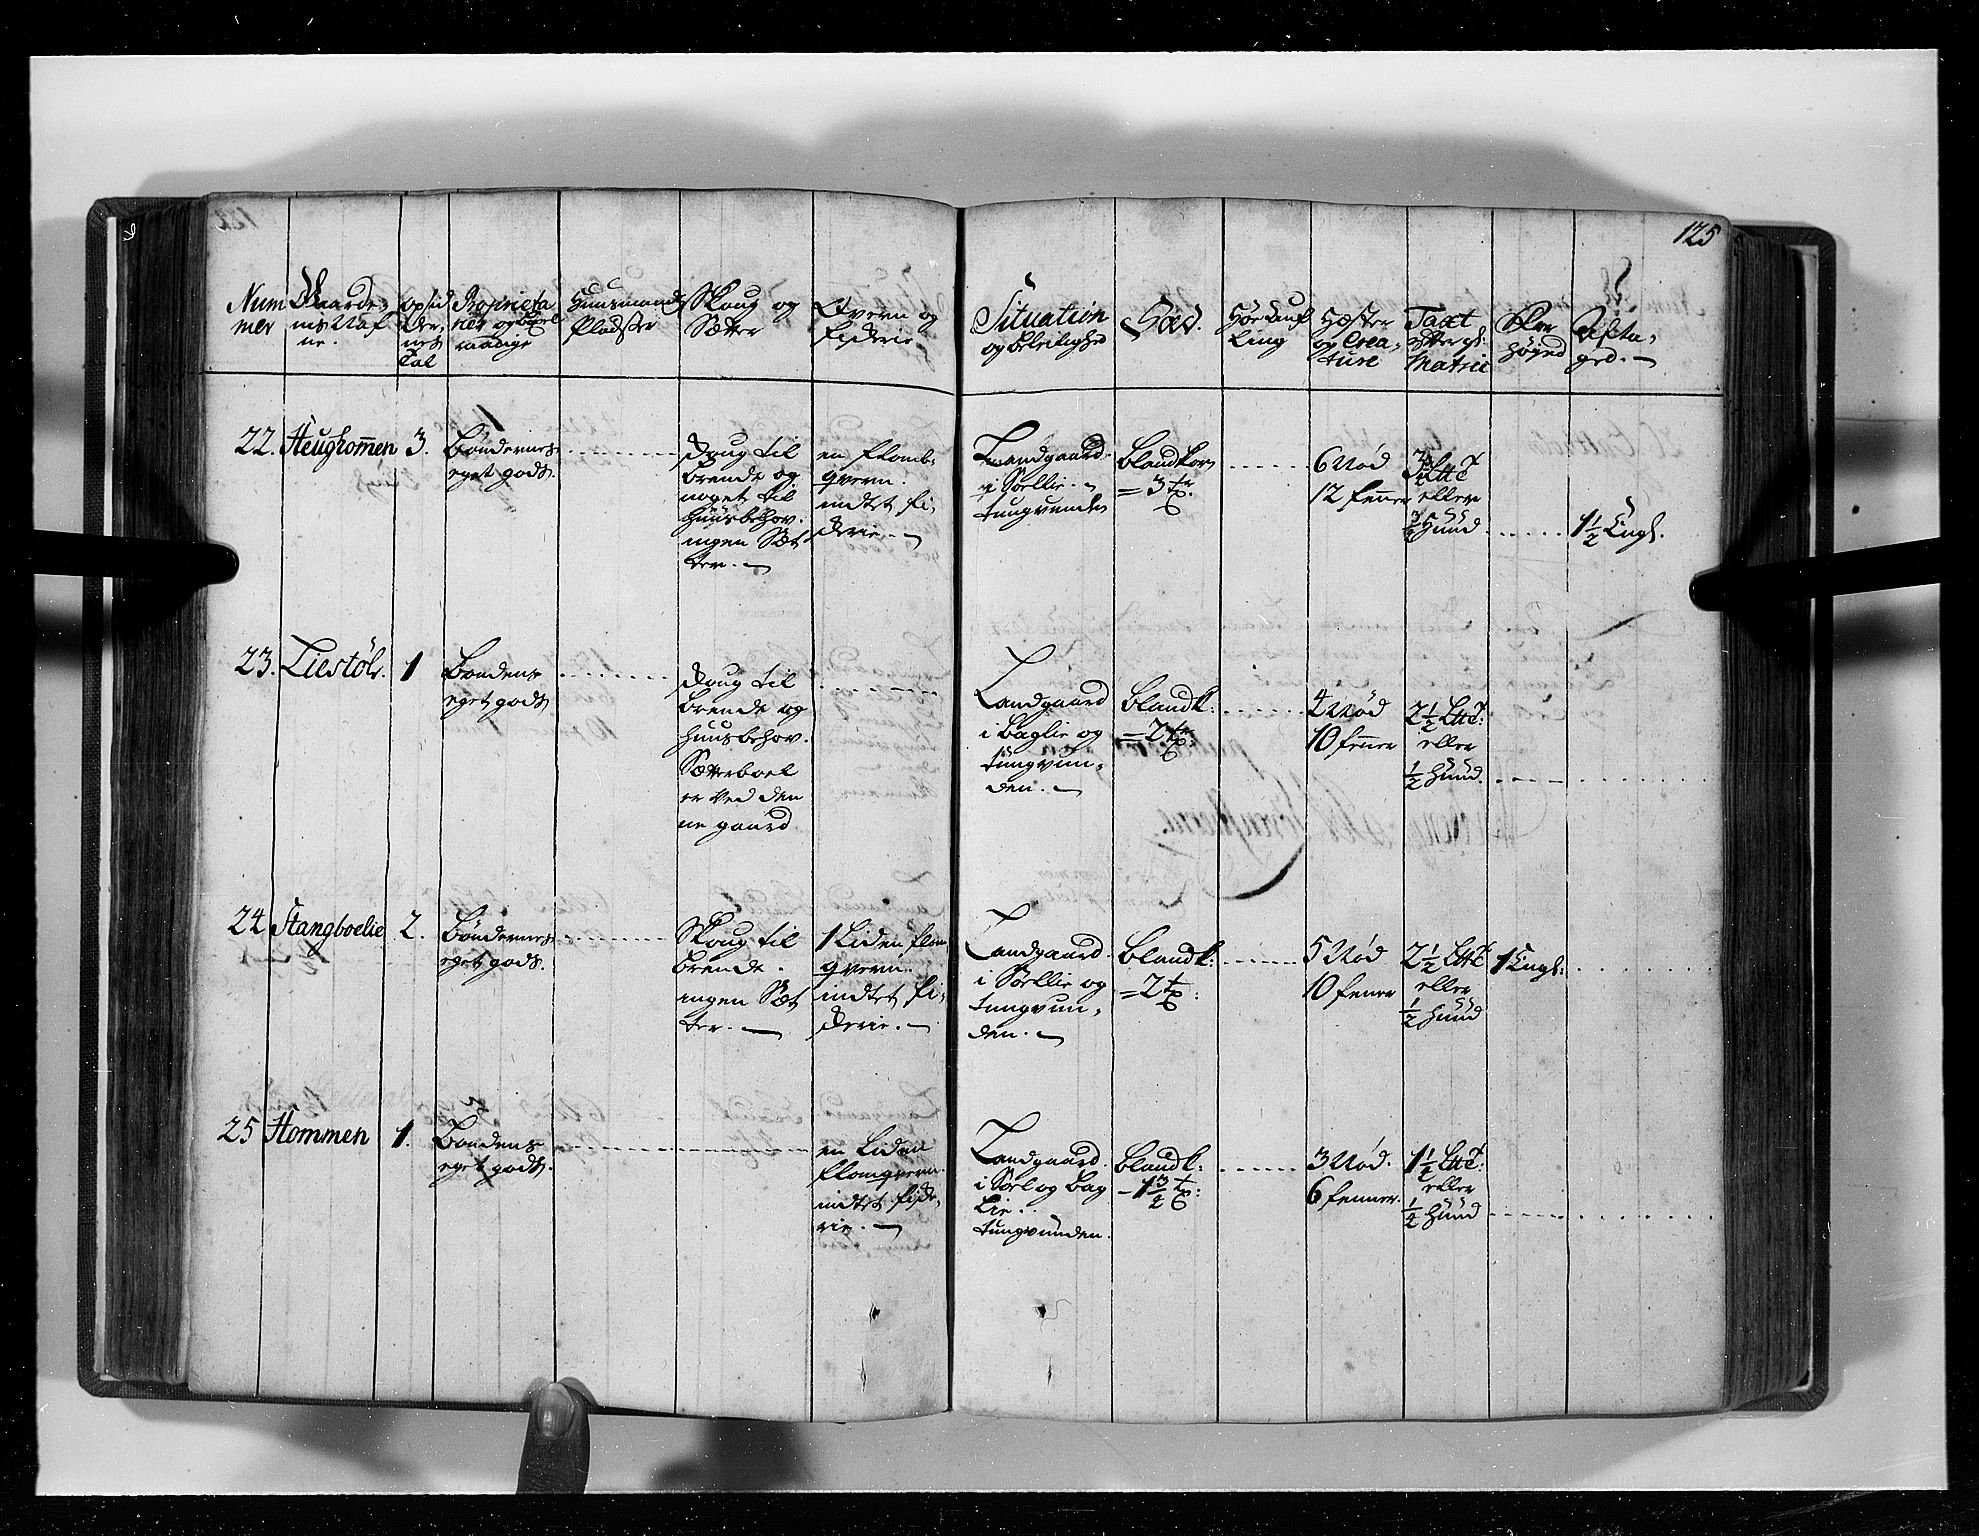 125
Num
mer
Gaarde,
nis Naf
ne.
opsid
der,
nes
Tal
Proprieta
rier og Bøxel
raadige
Huusmænds
Pladser
Skoug og
Sætter
Qvern og
fiderie
Situation
og beleilighed
Sæd.
Høe Auf
ling
Hæster
og Crea,
ture
Taxt
effter gl:
Matric
For
høyed
Afta,
ged.
22. Heughom̄en 3. Bøndernes
eget gods.
skoug til
brende og
noget til
huusbehov.
ingen Sæt
ter.
en flomb,
qvern.
indtet fi,
derie.
Landgaard
i Soellie
tungvunden
blandkorn
= 3 tr.
6 Nød
12 fenner
eller
Huud
1½ Engl.
23. Liestöl. 1 Bondens
eget gods
skoug til
brende og
huusbehov.
Sætterboel
er ved den
ne gaard
Landgaard
i baglie og
tungvun,
den.
blandk:
= 2 tr
4 Nød
10 fenner
2½ Lltt:
eller
½ Huud.
24 Stangboelie 2. Bøndernes
eget gods.
Skoug til
brende.
ingen Sæt
ter.
1 Liden flom
qvern.
indtet fi,
derie.
Landgaard.
i Soellie og
tungvun,
den.
blandk:
= 2 t:
5 Nød
10 fener
2½ Lltt
eller
½ huud
1 Engl:
25 Hommen 1. Bondens
eget gods.
en Liden
flomqvern.
indtet fide,
rie.
Landgaard.
i Soel og bag
Lie.
tungvunden.
blandk:
3 Nød.
6 fenner.
1½ Lltt:
eller
¼ Huud